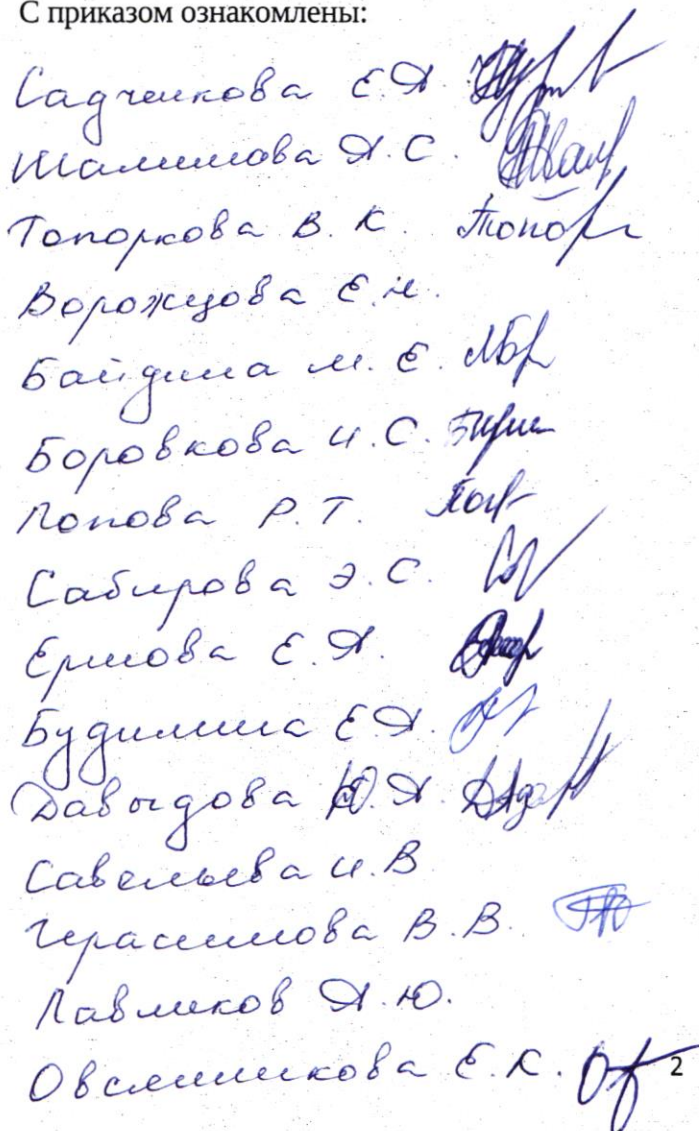 С приказом ознакомлены:
Садченкова Е.А.
Шалимова А.С.
Топоркова В.К. Топор
Ворожцова Е.Н.
Байдина М.Е.
Боровкова И.С.
Попова Р.Т.
Сабирова Э.С.
Ершова Е.А.
Будилина Е.А.
Давыдова Ю.А.
Савельева И.В
Герасимова В.В.
Павликов А.Ю.
Овсянникова Е.К.
2